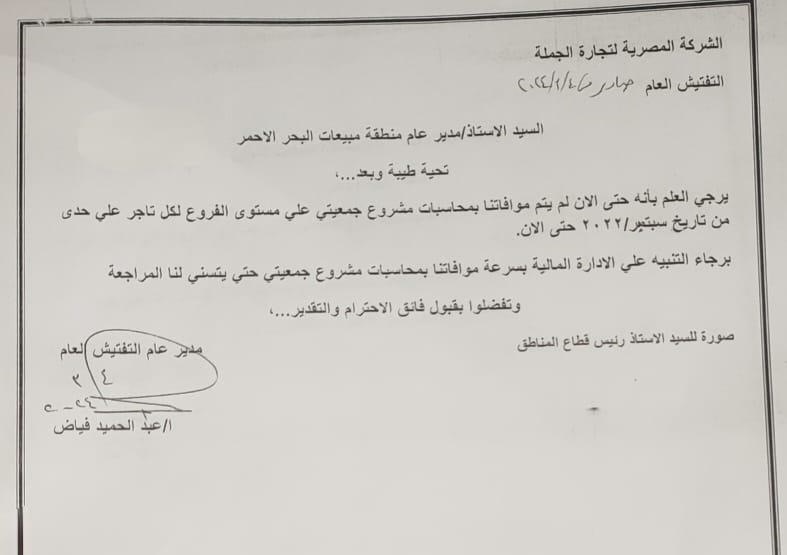 الشركة المصرية لتجارة الجملة
التفتيش العام صادر في ٢٠٢٤/٣/٤
السيد الاستاذ/مدير عام منطقة مبيعات البحر الاحمر
تحية طيبة وبعد...،
يرجي العلم بأنه حتى الان لم يتم موافاتنا بمحاسبات مشروع جمعيتي علي مستوى الفروع لكل تاجر علي حدى
من تاريخ سبتمبر/٢٠٢٢ حتى الان.
برجاء التنبيه علي الادارة المالية بسرعة موافاتنا بمحاسبات مشروع جمعيتي حتي يتسني لنا المراجعة
وتفضلوا بقبول فائق الاحترام والتقدير...،
صورة للسيد الاستاذ رئيس قطاع المناطق
مدير عام التفتيش العام
٤ ٣
ا/عبد الحميد فياض